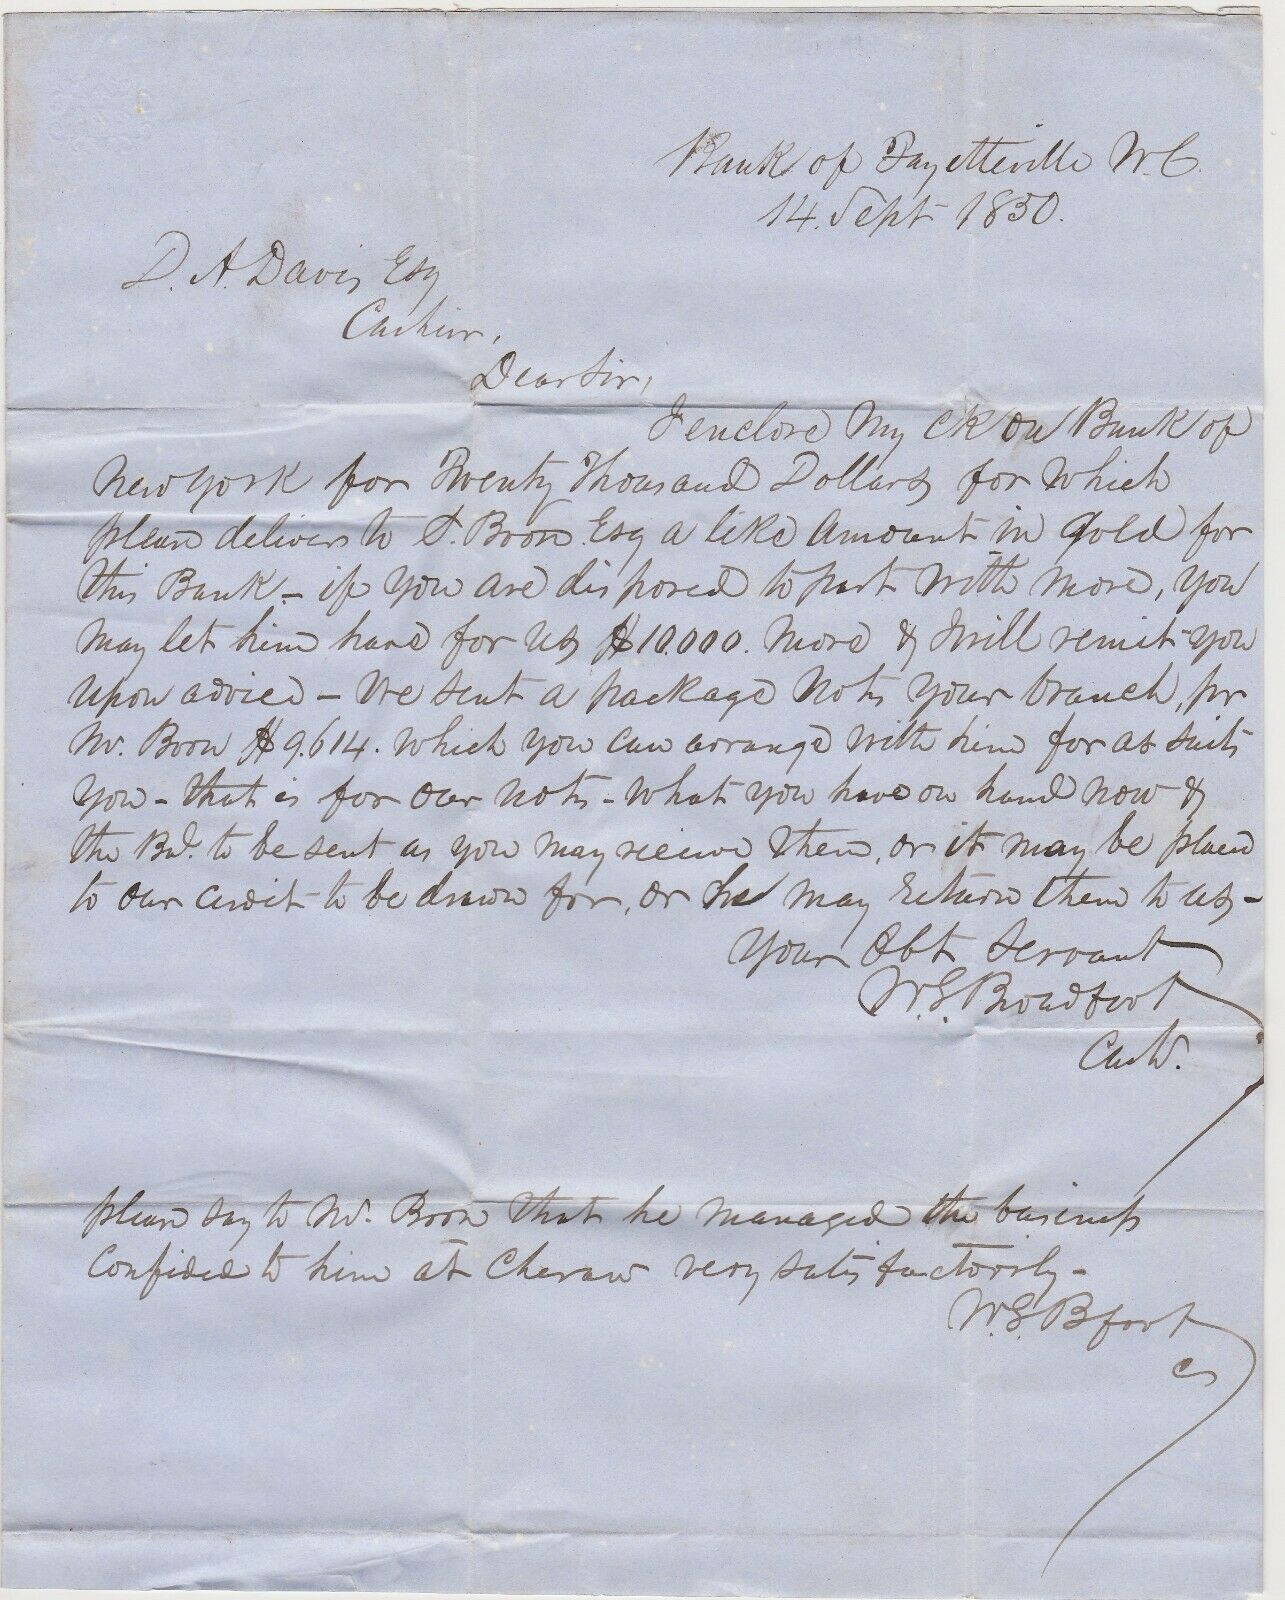 Bank of Fayetteville N.C.
14. Sept 1850.
D. A. Davis Esq
Cashier,
Dear Sir,
I enclose my ck on Bank of
New York for Twenty Thousand Dollars for which
please deliver to J. Boon Esq a like amount in gold for
this Bank – if you are disposed to part with more, you
may let him have for us $10.000. more & I will remit you
upon advice – We sent a package Notes your branch, pr
Mr. Boon $9.614. which you can arrange with him for as suits
you – that is for our notes – what you have on hand now &
the Bal. to be sent as you may receive them, or it may be placed
to our credit to be drawn for, or he may return them to us –
Your Obt Servant
W.G. Broadfoot
Cashr.
please say to Mr. Boon that he managed the business
Confided to him at Cheraw very satisfactorily –
W.G. Bfoot
Cr